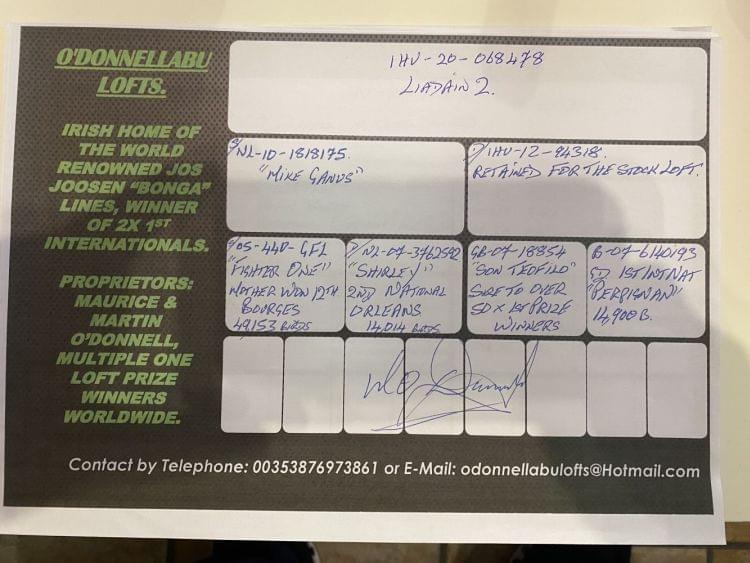 O'DONNELLABU
LOFTS.
IRISH HOME OF
THE WORLD
RENOWNED JOS
JOOSEN "BONGA"
LINES, WINNER
OF 2X 1ST
INTERNATIONALS.
PROPRIETORS:
MAURICE &
MARTIN
O'DONNELL,
MULTIPLE ONE
LOFT PRIZE
WINNERS
WORLDWIDE.
IHU-20-068478
LIADAIN 2.
NL-10-1818175.
"MIKE GANUS"
IHU-12-94318.
RETAINED FOR THE STOCK LOFT.
"FIGHTER ONE"
MOTHER WON 12TH
BOURGES
49,153 BIRDS
NL-07-3762592
"SHIRLEY"
2ND NATIONAL
ORLEANS
14,014 BIRDS
GB-07-18854
"SON TEOFILO"
SIRE TO OVER
50 X 1ST PRIZE
WINNERS
B-07-6140193
1ST INT NAT
"PERPIGNAN"
14,900 B.
Contact by Telephone: 00353876973861 or E-Mail: odonnellabulofts@Hotmail.com